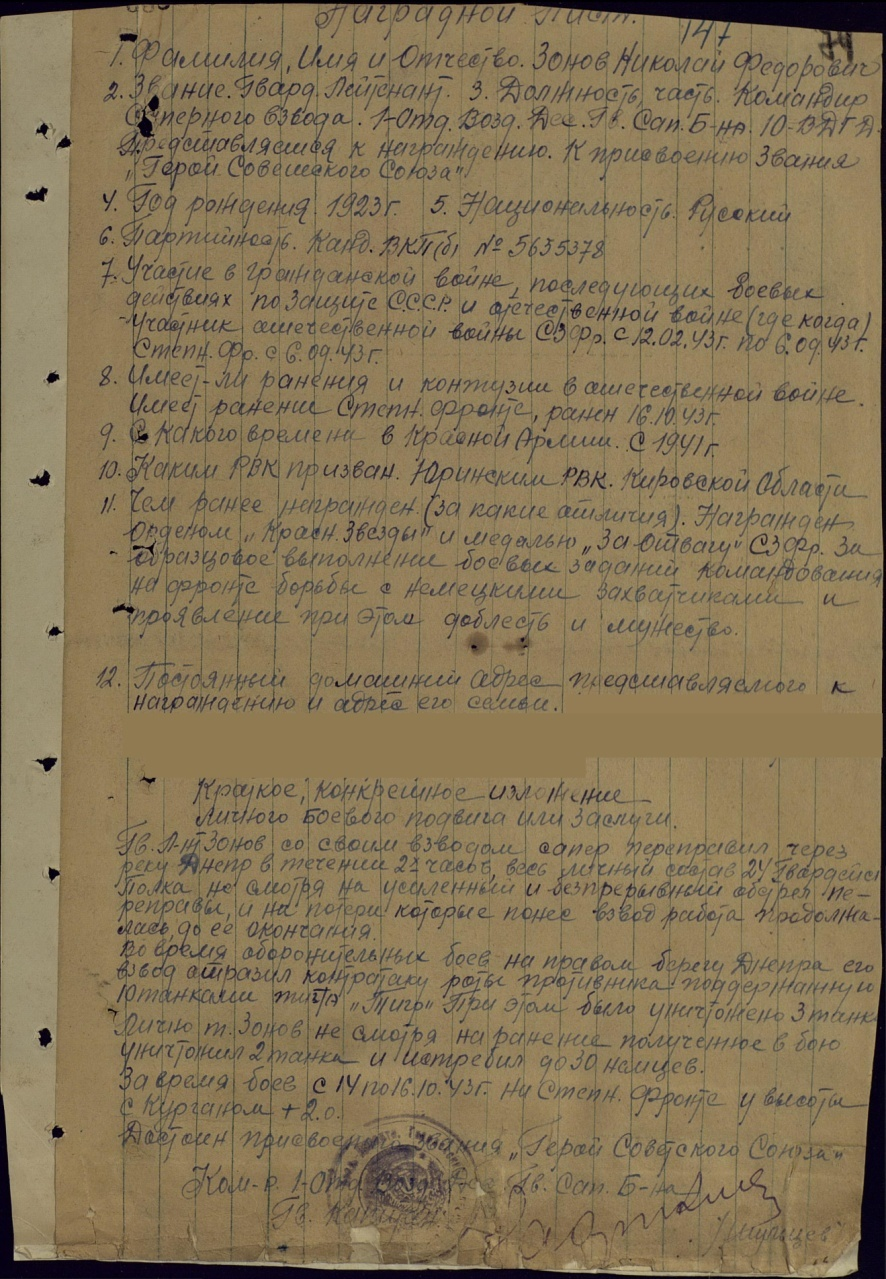 Наградной Лист.
147
1. Фамилия, Имя и Отчество. Зонов Николай Федорович
2. Звание. Гвард. Лейтенант. 3. Должность, часть. Командир
Сапёрного взвода. 1-Отд. Возд. Дес. Гв. Сап. Б-на. 10-ВДГД.
Представляется к награждению. К присвоению Звания
„Герой Советского Союза"
4. Год рождения. 1923г. 5. Национальность. Русский
6. Партийность. Канд. ВКП(б) № 5635378
7. Участие в гражданской войне, последующих боевых
действиях по защите С.С.С.Р. и отечественной войне (где когда)
Участник отечественной войны СЗФр. с 12.02.43г. по 6.09.43г.
Степн. Фр. с 6.09.43г.
8. Имеет-ли ранения и контузии в отечественной войне.
Имеет ранение Степн. фронте, ранен 16.10.43г.
9. С какого времени в Красной Армии. С 1941г.
10. Каким РВК призван. Юринским РВК. Кировской Области
11. Чем ранее награжден. (за какие отличия). Награжден
орденом „Красн. Звезды" и медалью „За отвагу" СЗФр. За
образцовое выполнение боевых заданий командования
на фронте борьбы с немецкими захватчиками и
проявление при этом доблесть и мужество.
12. Постоянный домашний адрес представляемого к
награждению и адрес его семьи.
Краткое, конкретное изложение
личного боевого подвига или заслуги.
Гв. Л-т Зонов со своим взводом сапер переправил через
реку Днепр в течении 2х часов, весь личный состав 24 Гвардейск
Полка не смотря на усиленный и безпрерывный обстрел пе-
реправы, и на потери которые понес взвод работа продолжа-
лась до её окончания.
Во время оборонительных боев на правом берегу Днепра его
взвод отразил контратаку роты противника поддержанную
10 танками типа „Тигр" При этом было уничтожено 3 танка
Лично т. Зонов не смотря на ранение полученное в бою
уничтожил 2 танка и истребил до 30 немцев.
За время боев с 14 по 16.10.43г. на Степн. Фронте у высоты
с Курганом +2.0.
Достоин присвоения звания „Герой Советского Союза"
Ком-р. 1-Отд. Возд. Дес Гв. Сап. Б-на
Гв. Капитан